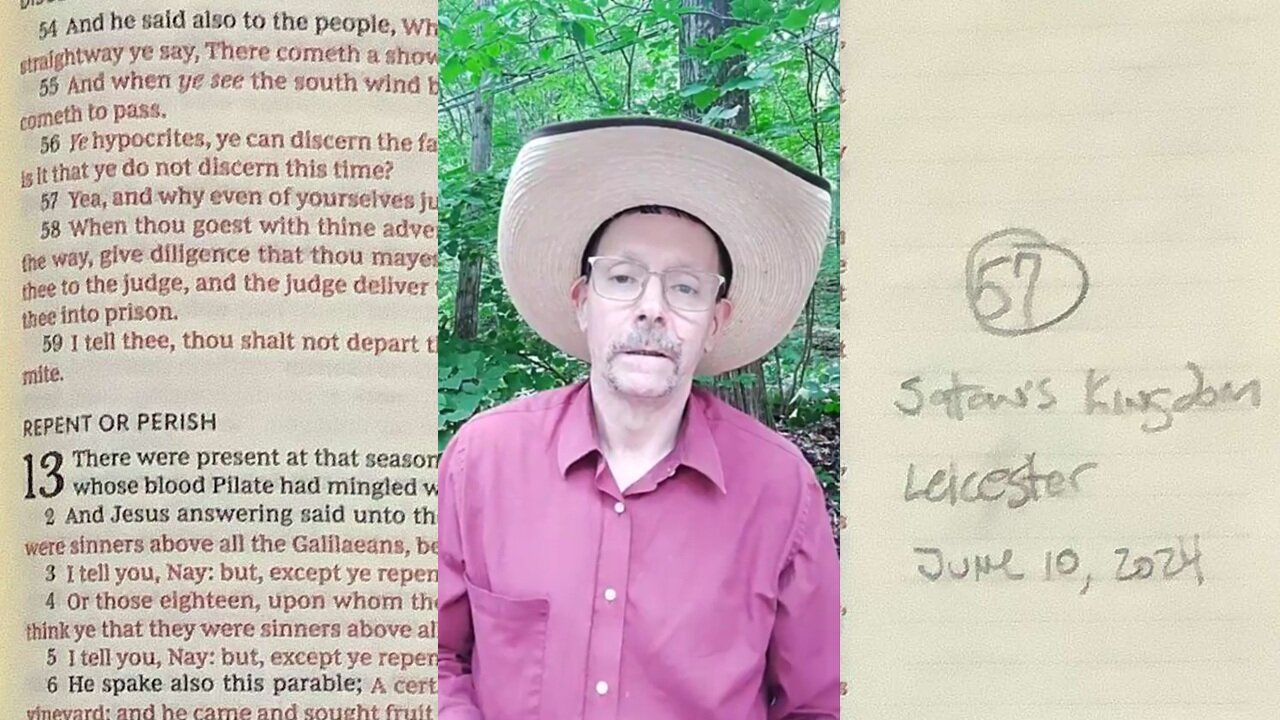 54 And he said also to the people, Wh
straightway ye say, There cometh a show
55 And when ye see the south wind b
cometh to pass.
56 Ye hypocrites, ye can discern the fa
is it that ye do not discern this time?
57 Yea, and why even of yourselves ju
58 When thou goest with thine adve
the way, give diligence that thou maye
thee to the judge, and the judge deliver
thee into prison.
59 I tell thee, thou shalt not depart t
mite.
REPENT OR PERISH
13 There were present at that season
whose blood Pilate had mingled w
2 And Jesus answering said unto th
were sinners above all the Galilaeans, be
3 I tell you, Nay: but, except ye repen
4 Or those eighteen, upon whom the
think ye that they were sinners above al
5 I tell you, Nay: but, except ye repen
6 He spake also this parable; A cert
vineyard; and he came and sought fruit
57
Satan's Kingdom
Leicester
June 10, 2024